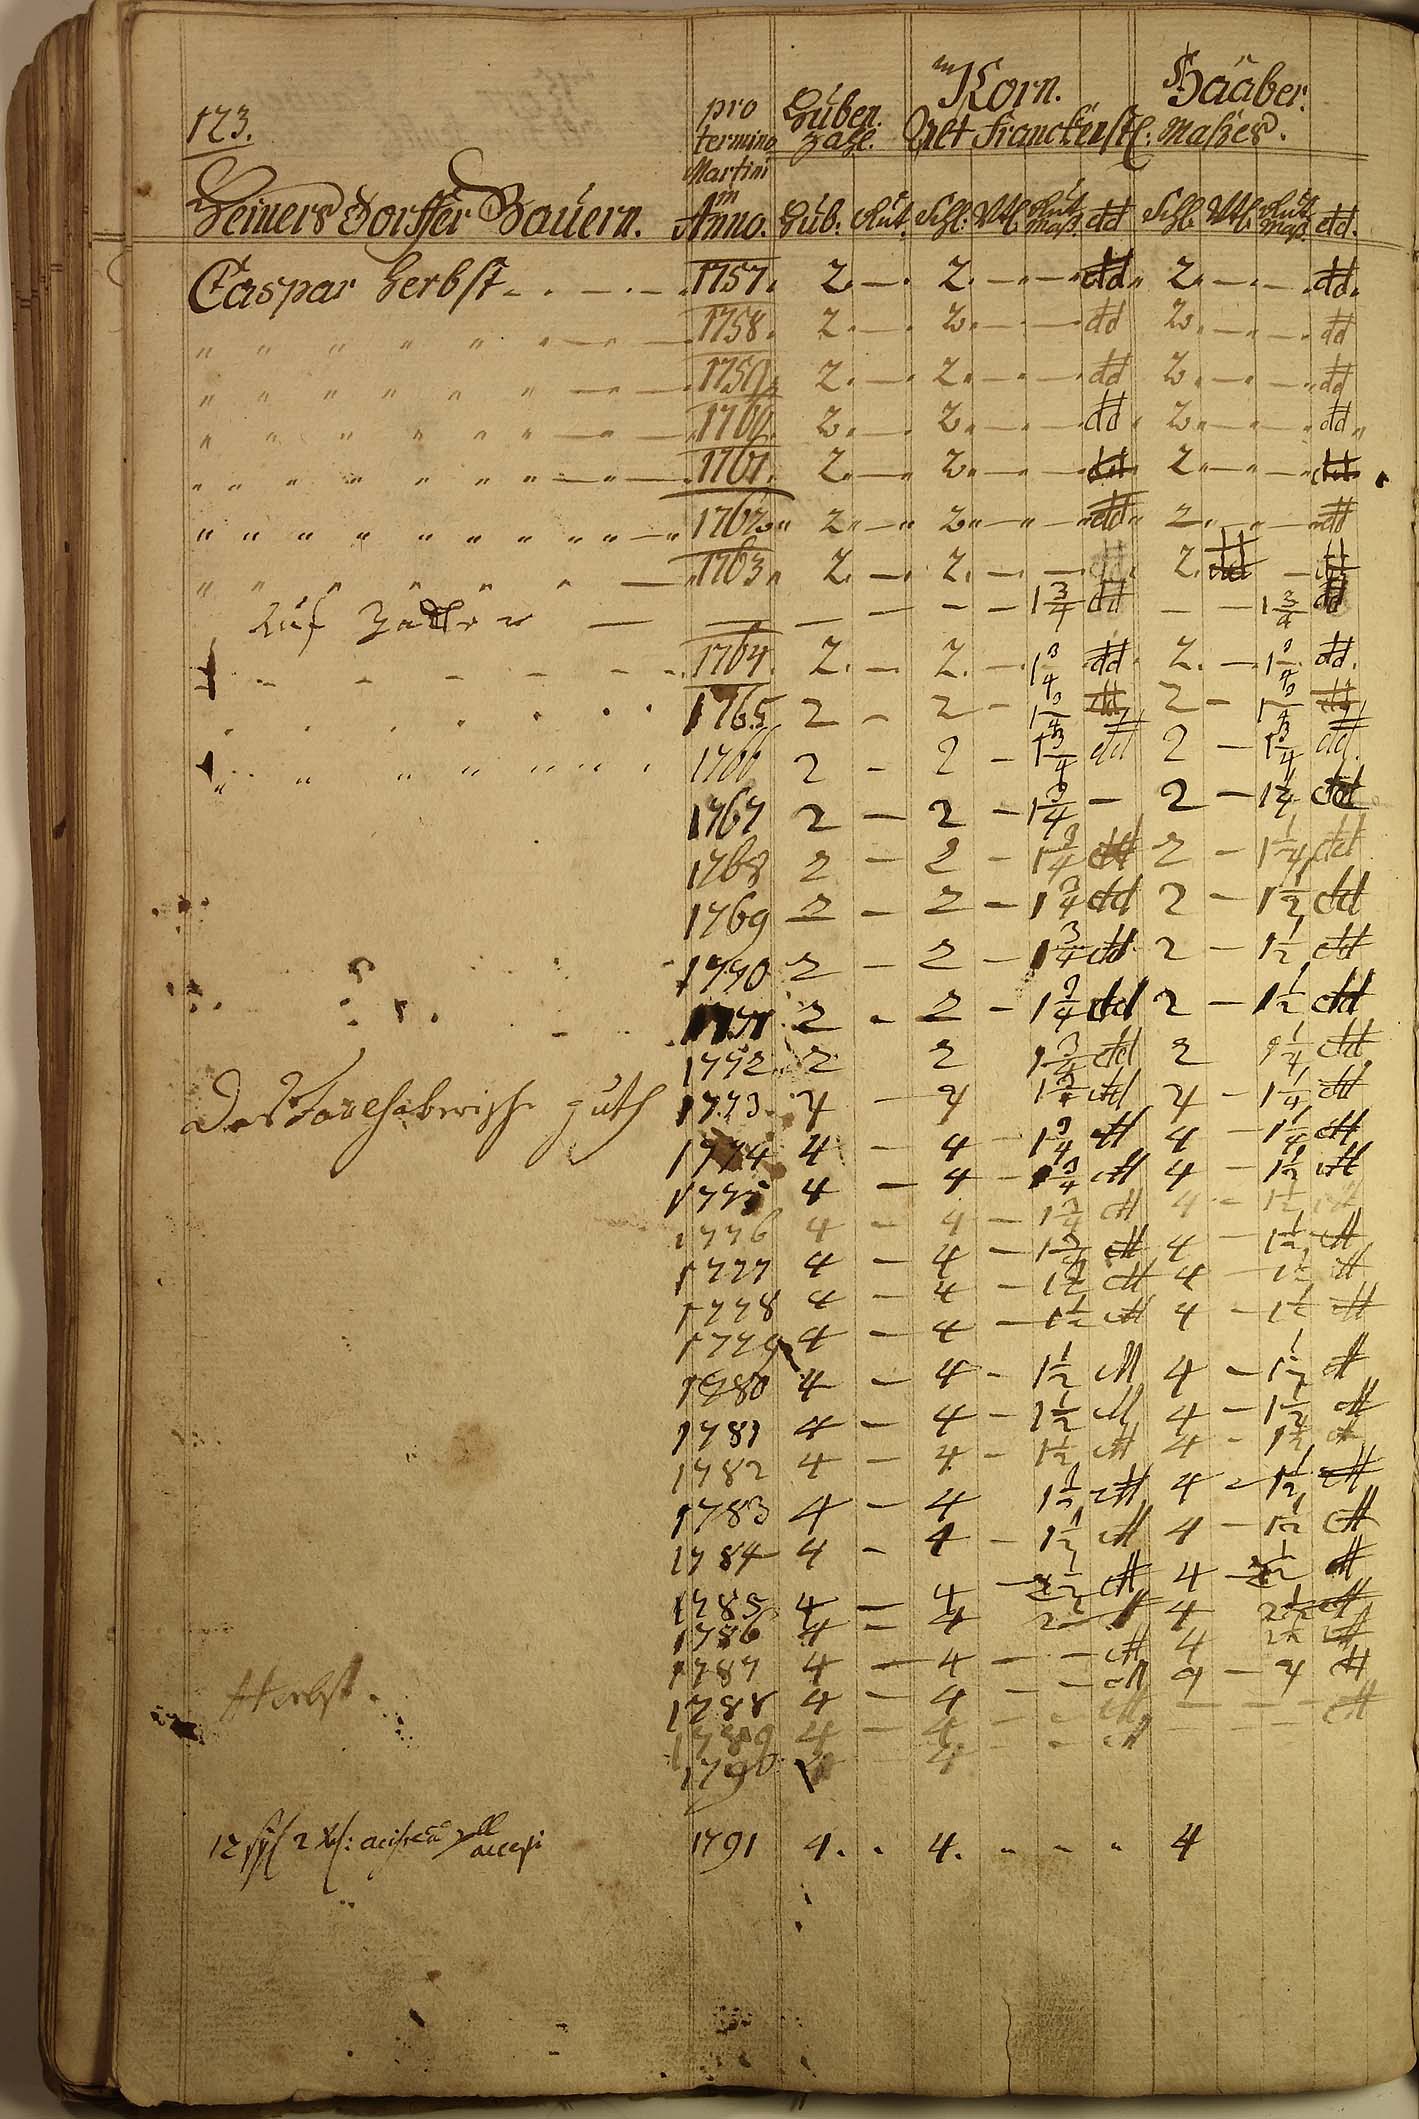 123.
pro termino Martini in Anno.
Huben Zahl.
in Korn.
Haaber.
Alt Franckenst: Maßes.
Heiners Dorffer Bauern.
Hub. Rut. Schl. Vtl. Rut Maß. dd Schl. Vtl. Rut Maß. dd.
Caspar Herbst 1757. 2. — 2. — — dd. 2. — — dd.
1758. 2. — 2. — — dd 2. — — dd
1759. 2. — 2. — — dd 2. — — dd
1760. 2. — 2. — — dd 2. — — dd
1761. 2. — 2. — — dd 2. — — dd.
1762. 2. — 2. — — dd 2. — — dd
1763. 2. — 2. — — dd 2. dd — dd
Auf — — — — — — 1 3/4 dd — — 1 3/4 dd
1764. 2. — 2. — 1 3/4 dd 2. — 1 3/4 dd.
1765 2 — 2 — 1 3/4 dd 2 — 1 3/4 dd
1766 2 — 2 — 1 3/4 dd 2 — 1 3/4 dd
1767 2 — 2 — 1 3/4 — 2 — 1 1/4 dd
1768 2 — 2 — 1 3/4 dd 2 — 1 1/4 dd
1769 2 — 2 — 1 3/4 dd 2 — 1 1/2 dd
1770 2 — 2 — 1 3/4 dd 2 — 1 1/2 dd
1771 2 — 2 — 1 3/4 dd 2 — 1 1/2 dd
1772 2 2 1 3/4 dd 2 1 1/4 dd
guth 1773 4 — 4 1 3/4 dd 4 — 1 1/4 dd
1774 4 — 4 — 1 3/4 dd 4 — 1 1/4 dd
1775 4 — 4 — 1 3/4 dd 4 — 1 1/2 dd
1776 4 — 4 — 1 3/4 dd 4 — 1 1/2 dd
1777 4 — 4 — 1 3/4 dd 4 — 1 1/2 dd
1778 4 — 4 — 1 1/2 dd 4 — 1 1/2 dd
1779 4 — 4 — 1 1/2 dd 4 — 1 1/2 dd
1780 4 — 4 — 1 1/2 dd 4 — 1 1/2 dd
1781 4 — 4 — 1 1/2 dd 4 — 1 1/2 dd
1782 4 — 4 — 1 1/2 dd 4 — 1 1/2 dd
1783 4 — 4 1 1/2 dd 4 — 1 1/2 dd
1784 4 — 4 — 1 1/2 dd 4 — 1 1/2 dd
1785 4 — 4 — 2 1/2 dd 4 — 2 1/2 dd
1786 4 — 4 dd 4 2 1/2 dd
1787 4 — 4 — — dd 4 dd
Herbst. 1788 4 — 4 — — dd 4 — 4 dd
1789 4 — 4 — — dd — — — dd
1790 4 — 4 — — dd
1791 4. . 4. „ „ „ 4